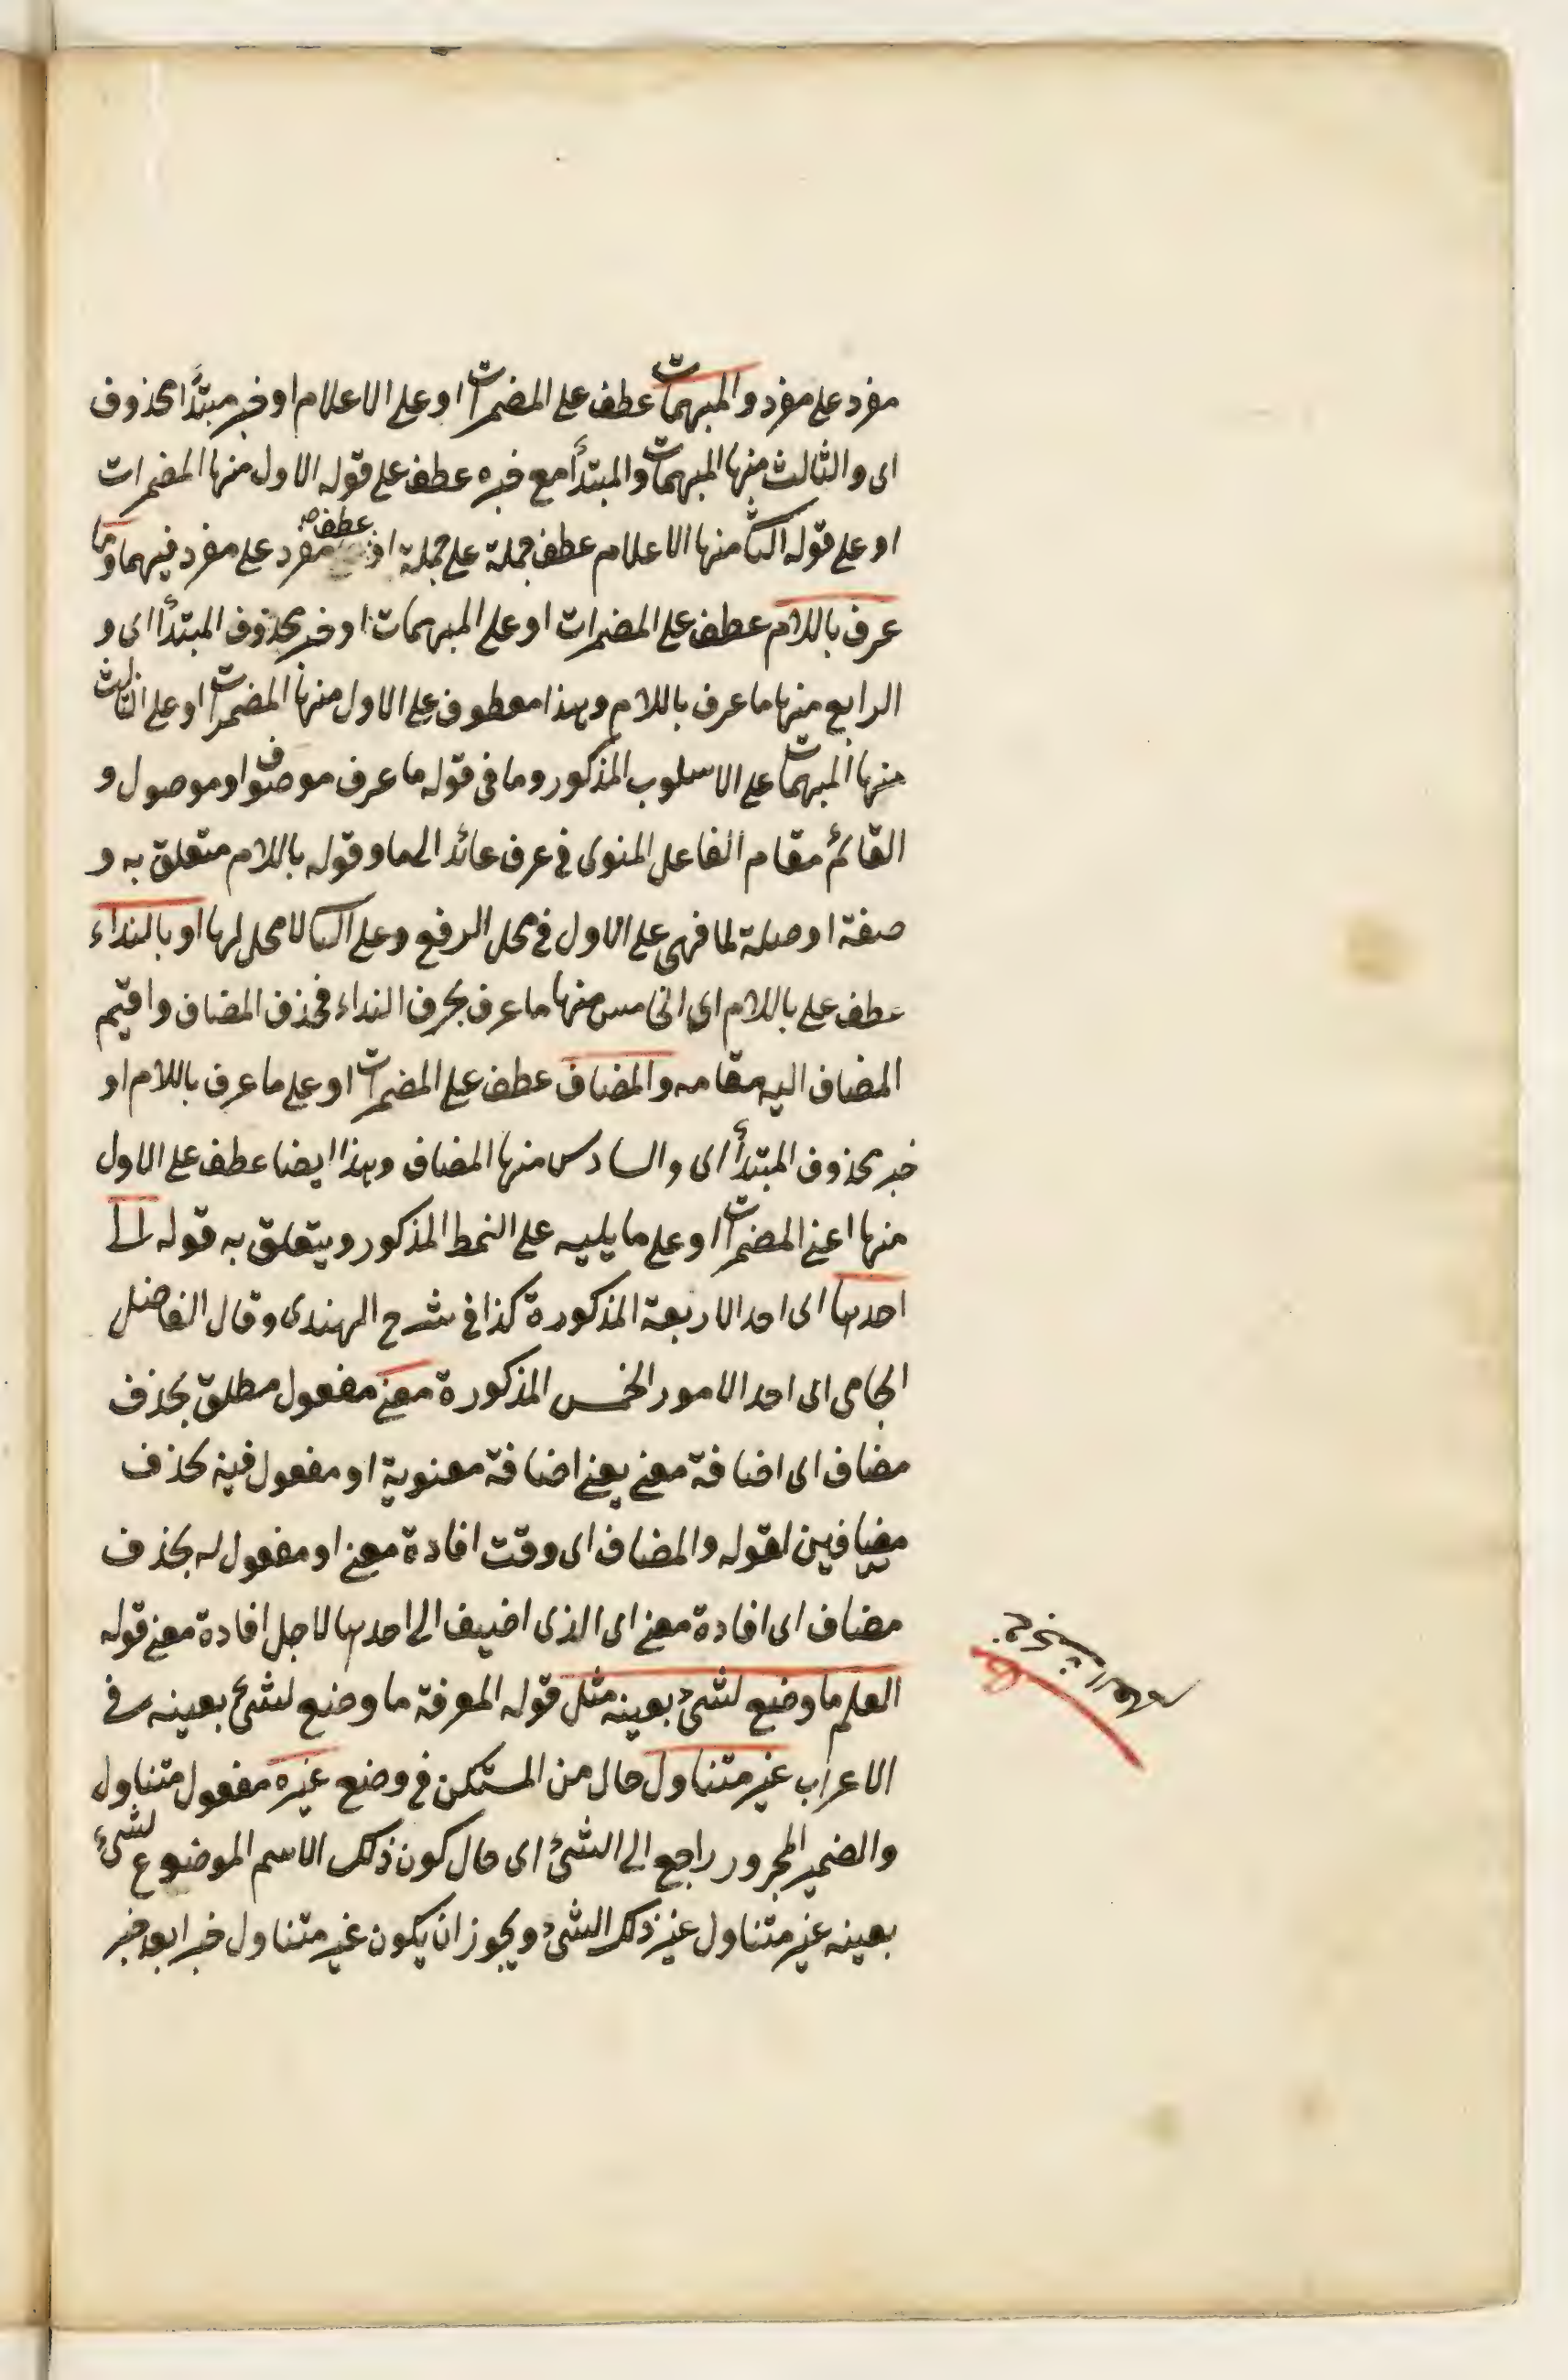 مفرد على مفرد والمبهمات عطف على المضمرات او على الاعلام او خبر مبتدأ محذوف
اى والثالث منها المبهمات والمبتدأ مع خبره عطف على قوله الاول منها المضمرات
او على قوله الثانى منها الاعلام عطف جملة على جملة او عطف مفرد على مفرد فيهما وما
عرف باللام عطف على المضمرات او على المبهمات او خبر محذوف المبتدأ اى و
الرابع منها ما عرف باللام وهذا معطوف على الاول منها المضمرات او على الثالث
منها المبهمات على الاسلوب المذكور وما فى قوله ما عرف موصوف او موصول و
القائم مقام الفاعل المنوى فى عرف عائد الى ما وقوله باللام متعلق به و
صفة او صلة لما فهى على الاول فى محل الرفع وعلى الثانى لا محل لها او بالنداء
عطف على باللام اى الخامس منها ما عرف بحرف النداء فحذف المضاف واقيم
المضاف اليه مقامه والمضاف عطف على المضمرات او على ما عرف باللام او
خبر محذوف المبتدأ اى والسادس منها المضاف وهذا ايضا عطف على الاول
منها اعنى المضمرات او على ما يليه على النمط المذكور ويتعلق به قوله الى
احدها اى احد الاربعة المذكورة كذا فى شرح الهندى وقال الفاضل
الجامى اى احد الامور الخمس المذكورة معنى مفعول مطلق بحذف
مضاف اى اضافة معنى يعنى اضافة معنوية او مفعول فيه بحذف
مضافين لقوله والمضاف اى وقت افادة معنى او مفعول له بحذف
مضاف اى افادة معنى اى الذى اضيف الى احدها لاجل افادة معنى قوله
العلم ما وضع لشئ بعينه مثل قوله المعرفة ما وضع لشئ بعينه فى
الاعراب غير متناول حال من المستكن فى وضع غيره مفعول متناول
والضمير المجرور راجع الى الشئ اى حال كون ذلك الاسم الموضوع لشئ
بعينه غير متناول غير ذلك الشئ ويجوز ان يكون غير متناول خبرا بعد خبر